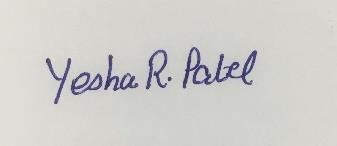 Yesha R. Patel